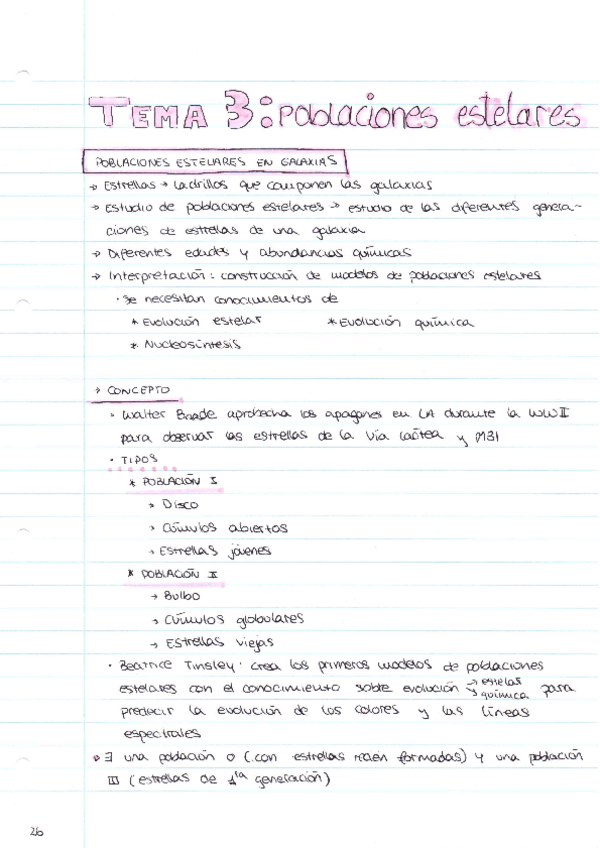 TEMA 3: poblaciones estelares
POBLACIONES ESTELARES EN GALAXIAS
→ Estrellas → ladrillos que componen las galaxias
→ Estudio de poblaciones estelares → estudio de las diferentes genera-
ciones de estrellas de una galaxia
→ Diferentes edades y abundancias químicas
→ Interpretación: construcción de modelos de poblaciones estelares
· Se necesitan conocimientos de
* Evolución estelar * Evolución química
* Nucleosíntesis
→ CONCEPTO
· Walter Baade aprovecha los apagones en LA durante la WWII
para observar las estrellas de la Vía láctea y M31
· TIPOS
* POBLACIÓN I
→ Disco
→ Cúmulos abiertos
→ Estrellas jóvenes
* POBLACIÓN II
→ Bulbo
→ Cúmulos globulares
→ Estrellas viejas
· Beatrice Tinsley: crea los primeros modelos de poblaciones
estelares con el conocimiento sobre evolución → estelar → química para
predecir la evolución de los colores y las líneas
espectrales
∃ una población 0 (con estrellas recién formadas) y una población
III (estrellas de 1ª generación)
26